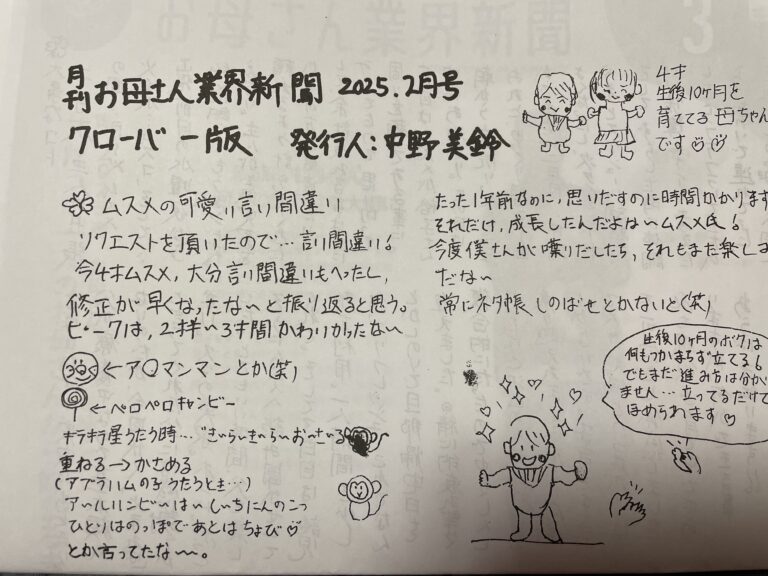 月刊お母さん業界新聞 2025.2月号
クローバー版 発行人:中野美鈴
4才
生後10ヶ月を
育ててる母ちゃん
です
ムスメの可愛い言い間違い
リクエストを頂いたので…言い間違い!
今4才ムスメ,大分言い間違いもへったし,
修正が早くなったな〜と振り返ると思う。
ピークは,2才半〜3才間かわりからったない
←ア○マンマンとか(笑)
←ペロペロキャンビー
キラキラ星うたう時…"きいらいきいらいおーさいる
重ねる→かさめる
(アブラハムの子うたうとき…)
アールハンビーはーしいちにんのこっ
ひとりはのっぽであとはちょび
とか言ってたな〜。
たった1年前なのに,思いだすのに時間かかります
それだけ,成長したんだよな〜ムスメ氏!
今度僕さんが喋りだしたら,それもまた楽しみ
だな〜
常にネタ帳しのばせとかないと(笑)
生後10ヶ月のボクは
何もつかまらず立てる!
でもまだ進み方は分かり
ません…立ってるだけで
ほめられます♡